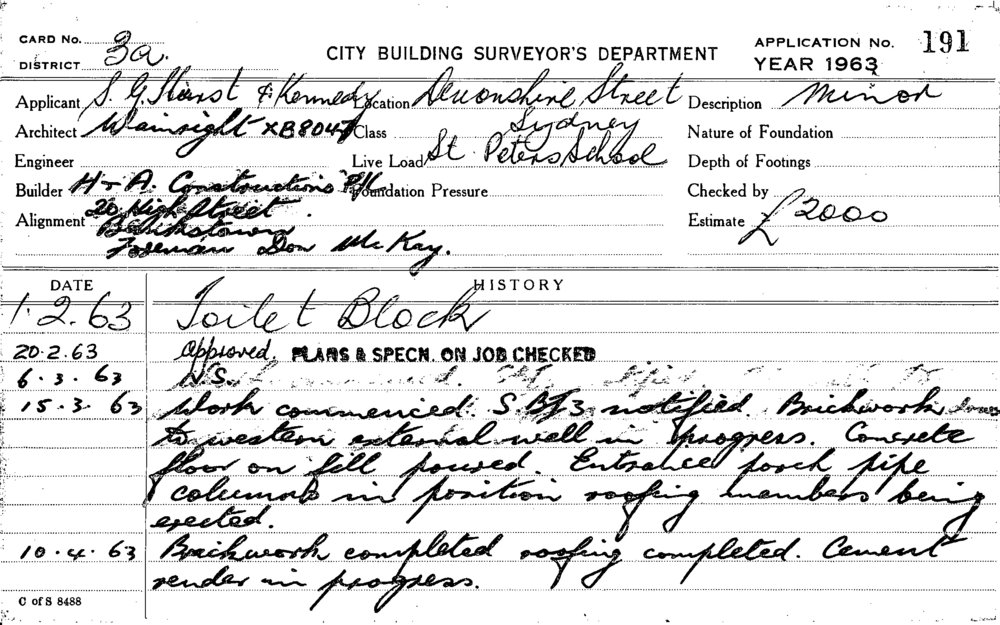 CARD No. 3a.
DISTRICT
CITY BUILDING SURVEYOR'S DEPARTMENT
APPLICATION No. 191
YEAR 1963
Applicant S. G. Hurst & Kennedy Location Devonshire Street Description Minor
Architect Wainright XB8047 Class Sydney Nature of Foundation
Engineer Live Load St Peters School Depth of Footings
Builder H & A. Constructions P/L Foundation Pressure Checked by
Alignment 20 High Street. Estimate £2000
Bankstown
Foreman Don McKay.
DATE HISTORY
1.2.63 Toilet Block
20.2.63 Approved. PLANS & SPECN. ON JOB CHECKED
6.3.63 N.S.
15.3.63 Work commenced. S BJ3 notified. Brickwork
to western external wall in progress. Concrete
floor on fill poured. Entrance porch pipe
columns in position roofing members being
erected.
10.4.63 Brickwork completed roofing completed. Cement
render in progress.
C of S 8488